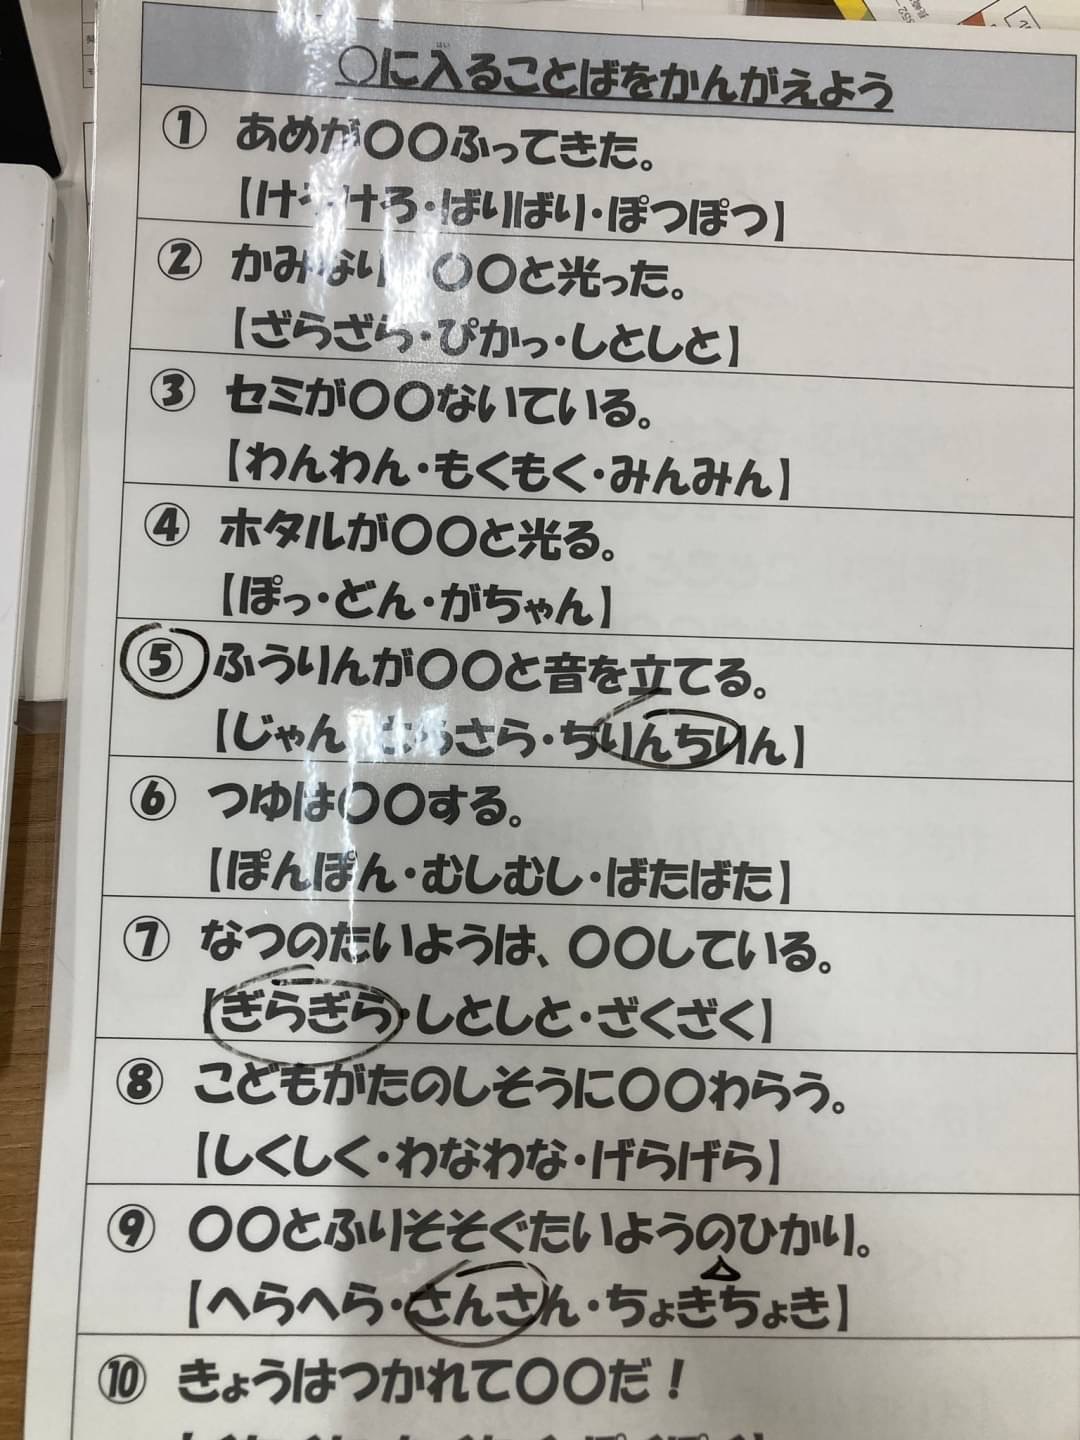 ○に入ることばをかんがえよう
はい
① あめが〇〇ふってきた。
【けろけろ・ばりばり・ぽつぽつ】
② かみなり 〇〇と光った。
【ざらざら・ぴかっ・しとしと】
③ セミが〇〇ないている。
【わんわん・もくもく・みんみん】
④ ホタルが〇〇と光る。
【ぽっ・どん・がちゃん】
⑤ ふうりんが〇〇と音を立てる。
【じゃん さらさら・ちりんちりん】
⑥ つゆは〇〇する。
【ぽんぽん・むしむし・ばたばた】
⑦ なつのたいようは、〇〇している。
【ぎらぎら・しとしと・ざくざく】
⑧ こどもがたのしそうに〇〇わらう。
【しくしく・わなわな・げらげら】
⑨ 〇〇とふりそそぐたいようのひかり。
【へらへら・さんさん・ちょきちょき】
⑩ きょうはつかれて〇〇だ！